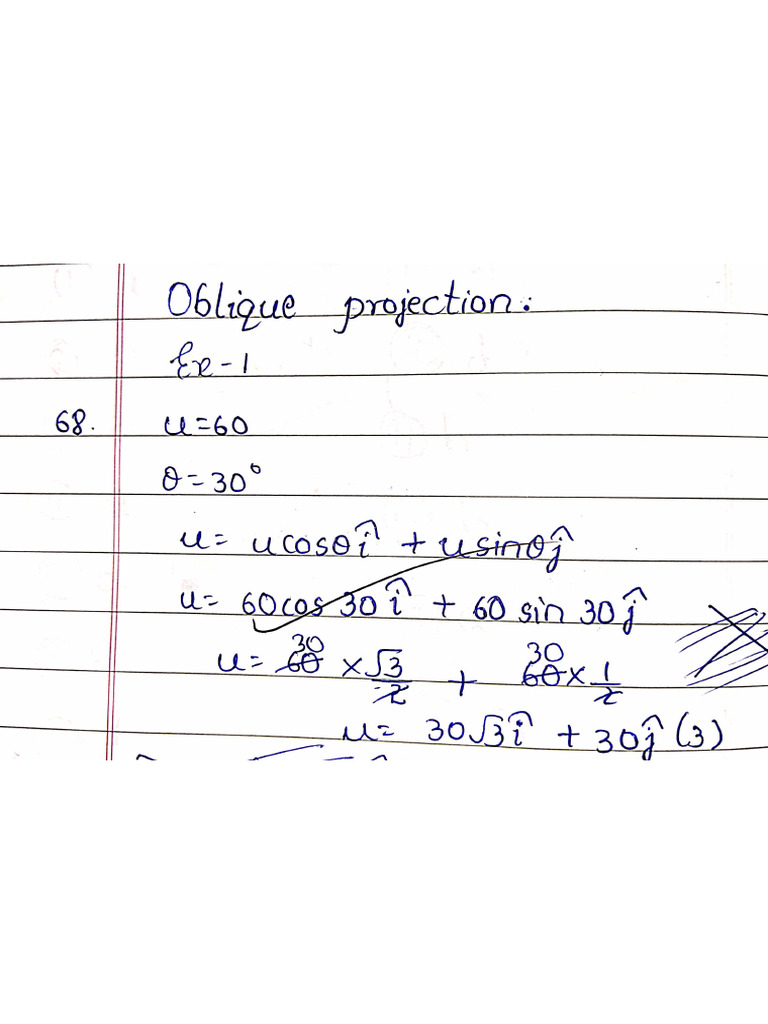 Oblique projection:
Ex-1
68. u=60
θ=30°
u= ucosθî + usinθĵ
u= 60cos30î + 60 sin 30ĵ
30 30
u= 60 × √3/2 + 60×1/2
u= 30√3î + 30ĵ (3)